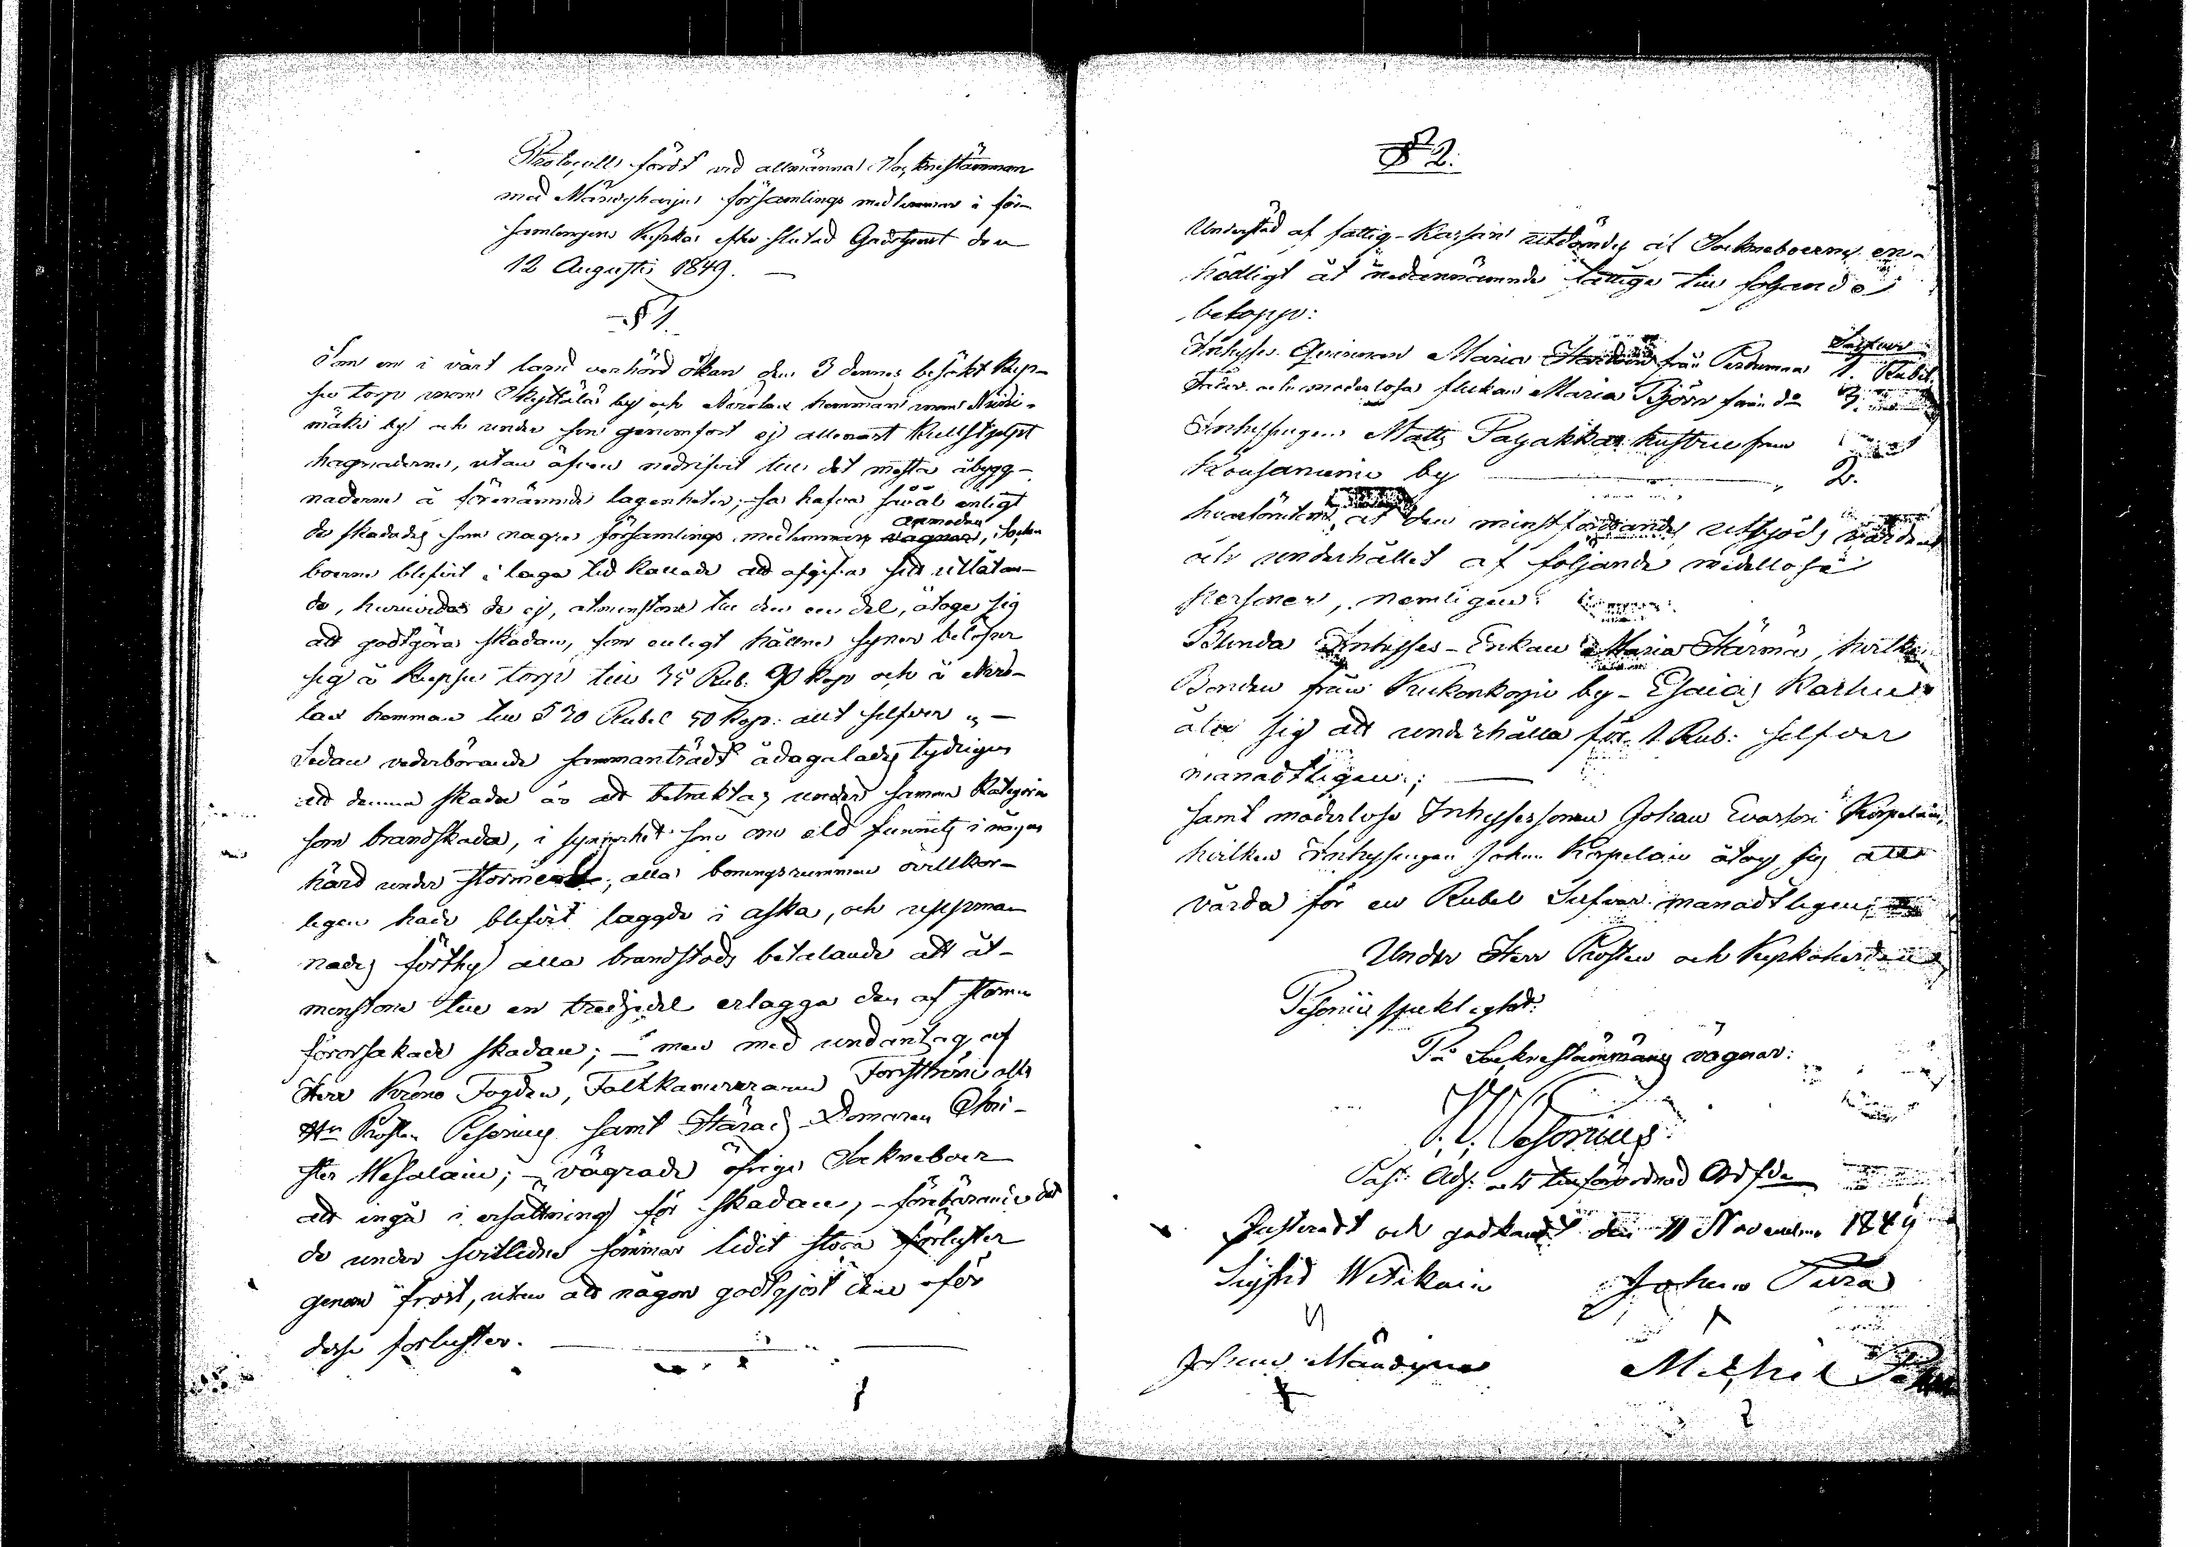 Protocoll fördt vid allmänna Socknestämman
med Mändyharju församlings medlemmar i för-
samlingens Kyrka efter slutad Gudstjenst den
12 Augusti 1849. —
§ 1.
Som en i vårt land oerhörd åkan den 3 dennes besökt
torp inom Skyttälä by och hemman inom Niini-
mäki by och under sin genomfart ej allenast kullstjelpt
hagnaderne, utan äfven nedrifvit till det mesta åbygg-
naderne å förenämnde lägenheter; så hafva såväl enligt
de skadades som några församlings medlemmars anmodan, Socken
boerne blifvit i laga tid kallade att afgifva sitt utlåtan-
de, huruvida de ej, åtminstone till den en del, åtoge sig
att godtgöra skadan, som enligt hållne syner belöper
sig å torp till 35 Rub. 90 Kop och å
lax hemman till 530 Rubel 50 Kop: allt silfver „ —
Sedan vederbörande sammanträdt ådagalades tydligen
att denna skada är att betraktas under samma Kategori
som brandskada, i synnerhet som om eld funnits i någon
härd under stormen; alla boningsrummen ovillkor-
ligen hade blifvit laggde i aska, och uppma-
nades förthy alla brandstods betalande att åt-
minstone till en tredjedel erlagga den af stormen
förorsakade skadan; — men med undantag af
Herr Krono Fogden, Faltkamereraren Forsström
Hr Prosten Pesonius samt Härads Domaren Chri-
ster Wesalain; — vägrade öfrige Sockneboer
att ingå i ersättning för skadan, — förebärande det
de under sistledne sommar lidit stora förluster
genom frost, utan att någon godtgjort dem för
desse förluster.
§ 2.
Understöd af fattig-Kassan utdömdes af Sockneboerne en-
hälligt åt nedannämnde fattige till följande
belopp:
Silfver
Inhyses Qvinnan Maria från Pertunmaa 1. Rubel.
Fader- och moderlösa flickan Maria Björn från do 3.
Inhysingen Matts Pajakkas hustru från
Kousaniemi by — „ 2.
hvarförutom, åt den minstfordrande utbjöds vården
och underhållet af följande medellösa
personer, nemligen:
Blinda Inhyses-Enkan Maria Härmä, hvilken
Bonden från Kukonkorpi by — Esaias Karhu
åtog sig att underhålla för 1 Rub: silfver
månadtligen; —
samt moderlöse Inhysessonen Johan Evason Korpelain,
hvilken Inhysingen Johan Korpelain åtog sig att
vårda för en Rubel Silfver månadtligen
Under Herr Prosten och Kyrkoherden
Pesonii
På Socknestämmans vägnar:
Pesonius
Past: Adj: och tillförordnad Ordf:de
Justeradt och godkändt den 11 November 1849
Sigfrid Witikain Johan Pura
Johan Mändynen Michel